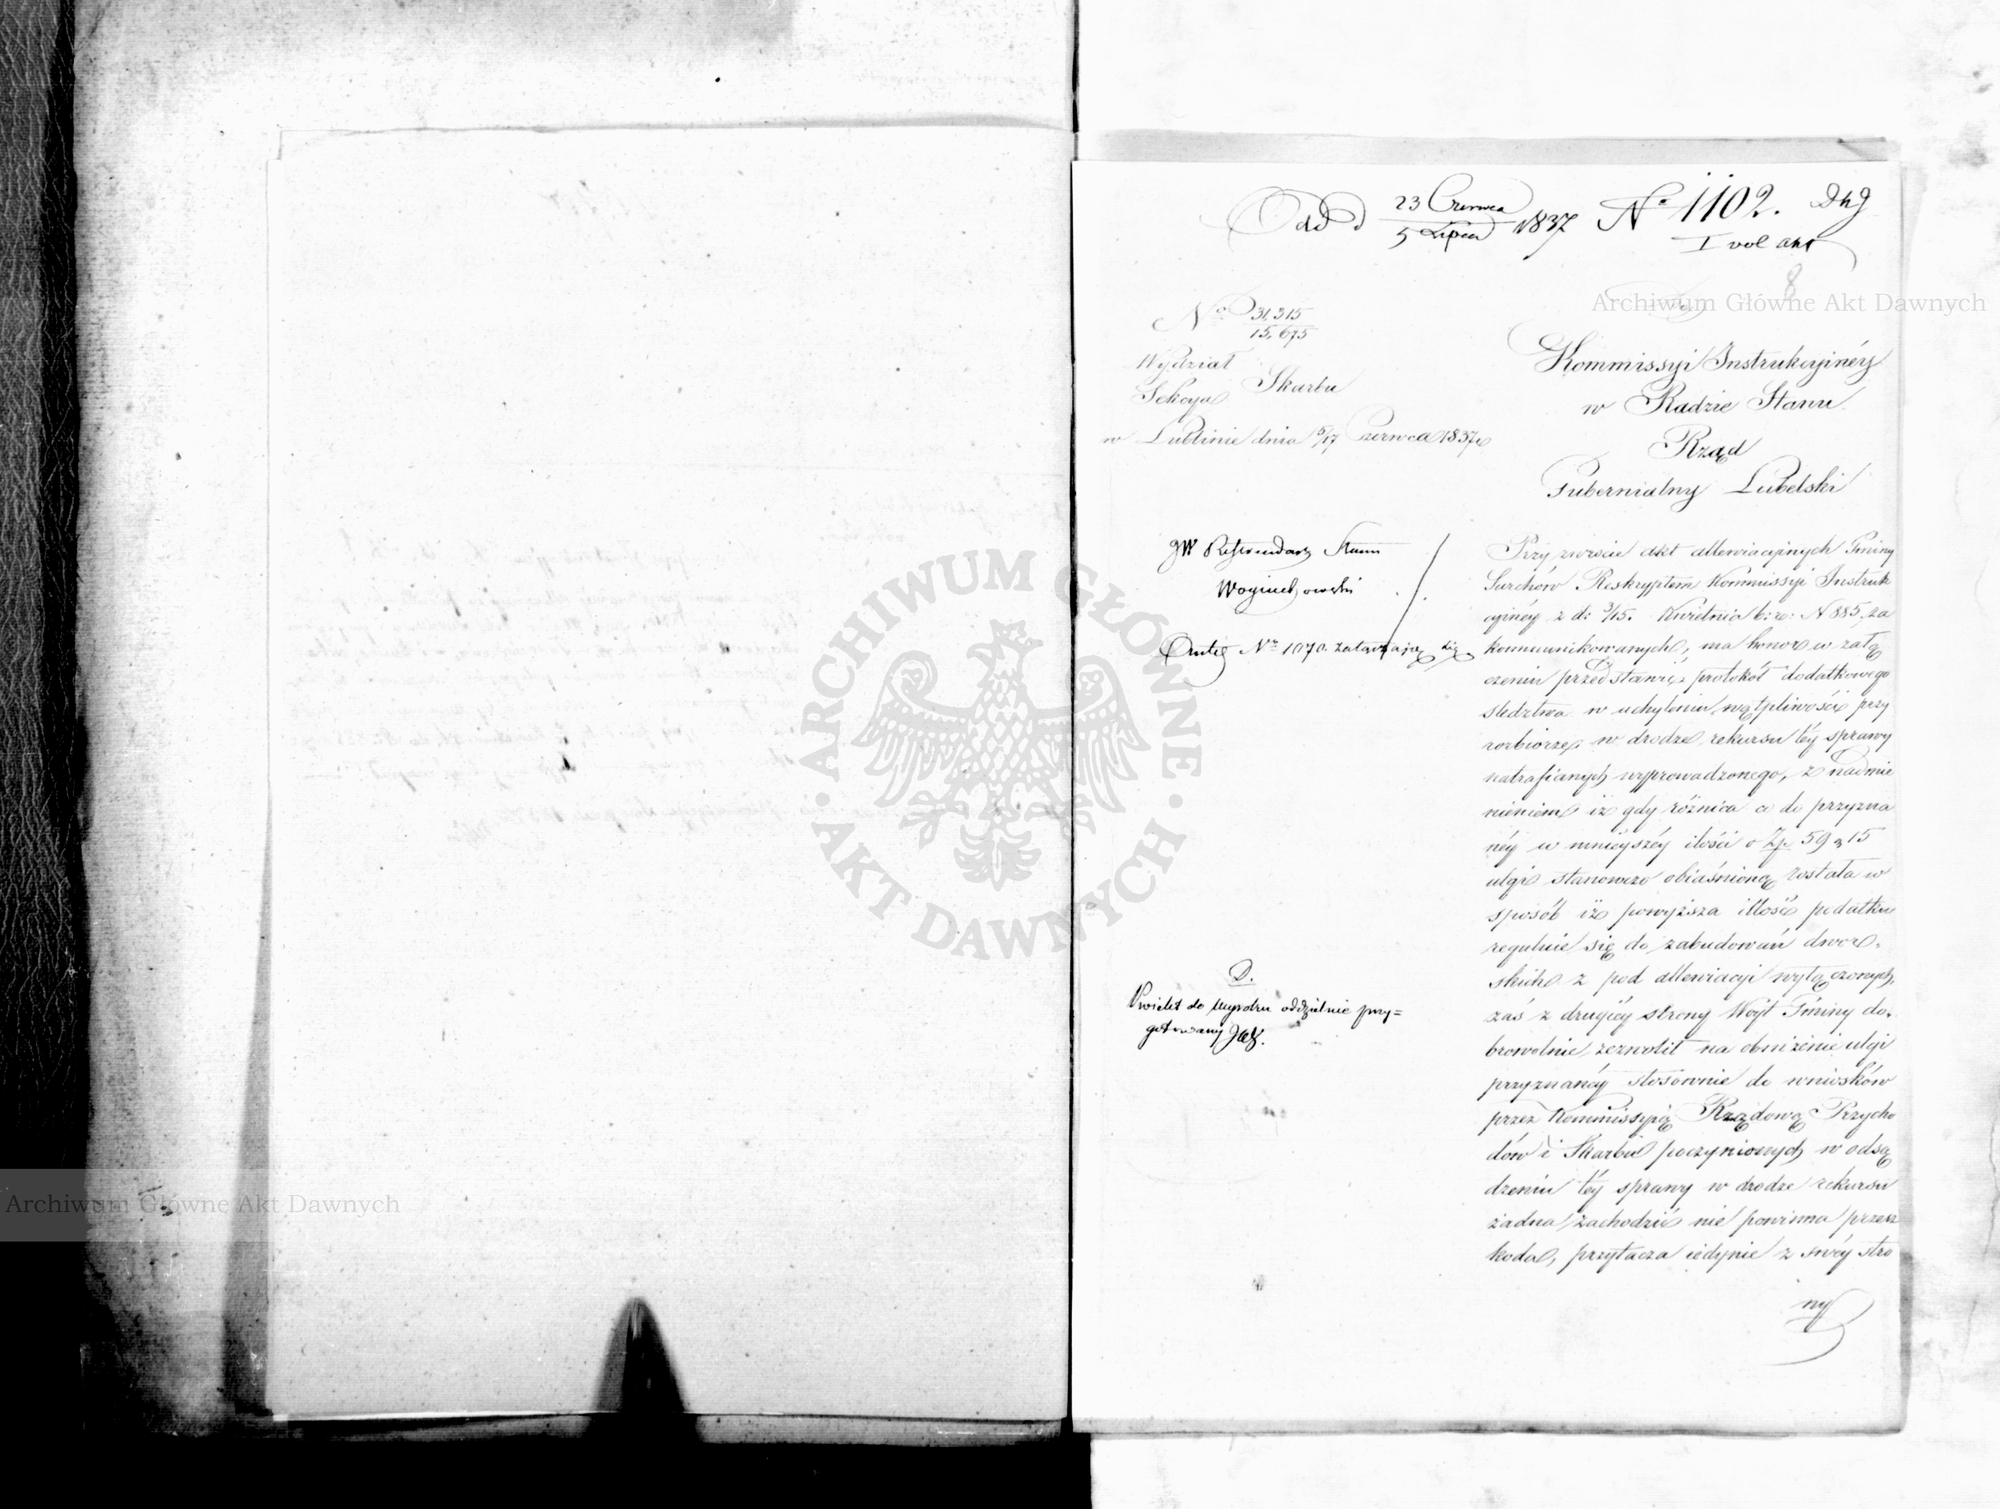 Odd 23 Czerwca / 5 Lipca 1837 No 1102.
I vol akt
8
Archiwum Główne Akt Dawnych
No 31,315 / 15,675
Wydział
Sekcya Skarbu
w Lublinie dnia 5/17 Czerwca 1837 r
Kommissyi Instrukcyinéy
w Radzie Stanu
Rząd
Gubernialny Lubelski
JW Referendarz Stanu
Woyciechowski
Akta Nr 1070. załączają się
Przy zwrocie akt allewiacyinych Gminy
Surchów Reskryptem Kommissyi Instruk
cyinéy z d: 3/15. Kwietnia b: r: N 885 za
kommunikowanych, ma honor w załą
czeniu przedstawić protokół dodatkowego
śledztwa w uchyleniu wątpliwości przy
rozbiorze w drodze rekursu téy sprawy
natrafianych wyprowadzonego, z nadmie
nieniem iż gdy różnica co do przyzna
néy w mnieyszéy ilości o Zp 59 g 15
ulgi stanowczo obiaśnioną została w
sposób iż powyższa illość podatku
reguluie się do zabudowań dwor„
skich z pod allewiacyi wyłączonych,
zaś z drugiéy strony Wóyt Gminy do„
browolnie zezwolił na obniżenie ulgi
przyznanéy stosownie do wniosków
przez Kommissyią Rządową Przycho
dów i Skarbu poczynionych w odsą
dzeniu téy sprawy w drodze rekursu
żadna zachodzić nie powinna przesz
koda, przytacza iedynie z swéy stro
ny
D.
Proiekt do Wyroku oddzielnie przy=
gotowany
ARCHIWUM GŁÓWNE AKT DAWNYCH
Archiwum Główne Akt Dawnych